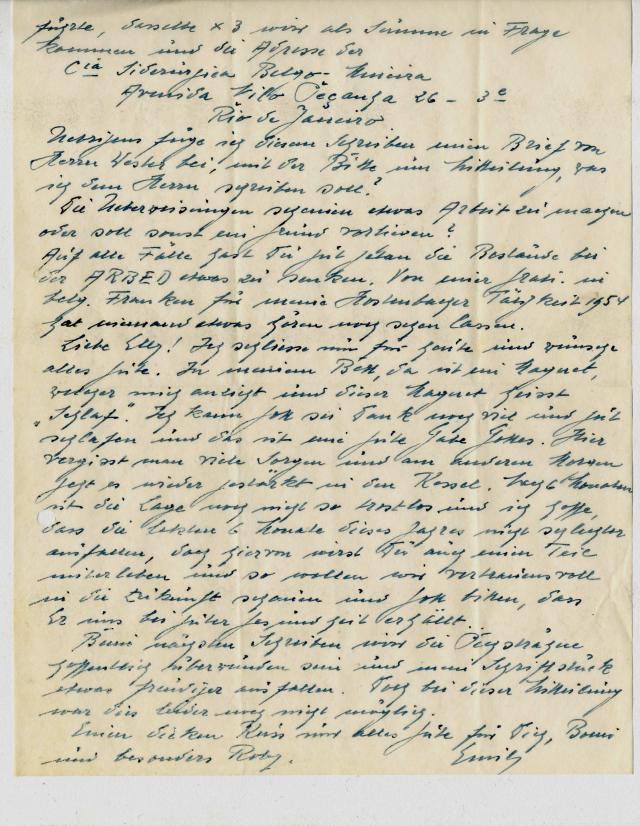 führte, dasselbe x 3 wird als Summe in Frage
kommen und die Adresse der
Cia Siderúrgica Belgo-Mineira
Avenida Nilo Peçanha 26 - 3e
Rio de Janeiro
Uebrigens füge ich diesem Schreiben einen Brief von
Herrn Wester bei, mit der Bitte um Mitteilung, was
ich dem Herrn schreiben soll?
Die Ueberweisungen scheinen etwas Arbeit zu machen
oder soll sonst ein Grund vorliegen?
Auf alle Fälle hast Du gut getan die Bestände bei
der ARBED etwas zu senken. Von einer Grati. in
belg. Franken für meine Hostenbacher Tätigkeit 1954
hat niemand etwas hören noch sehen lassen.
Liebe Elly! Ich schliesse nun für heute und wünsche
alles Gute. In meinem Bett, da ist ein Magnet,
welcher mich anzieht und dieser Magnet heisst
"Schlaf". Ich kann Gott sei Dank noch viel und gut
schlafen und das ist eine gute Gabe Gottes. Hier
vergisst man viele Sorgen und am anderen Morgen
geht es wieder gestärkt in den Kessel. Nach 6 Monaten
ist die Lage noch nicht so trostlos und ich hoffe,
dass die letzten 6 Monate dieses Jahres nicht schlechter
ausfallen, doch hiervon wirst Du auch einen Teil
miterleben und so wollen wir vertrauensvoll
in die Zukunft schauen und Gott bitten, dass
Er uns bei guter Gesundheit erhält.
Beim nächsten Schreiben wird die Pechsträhne
hoffentlich überwunden sein und mein Schriftstück
etwas freudiger ausfallen. Doch bei dieser Mitteilung
war dies leider noch nicht möglich.
Einen dicken Kuss und alles Gute für Dich, Bomi
und besonders Roby. Emil